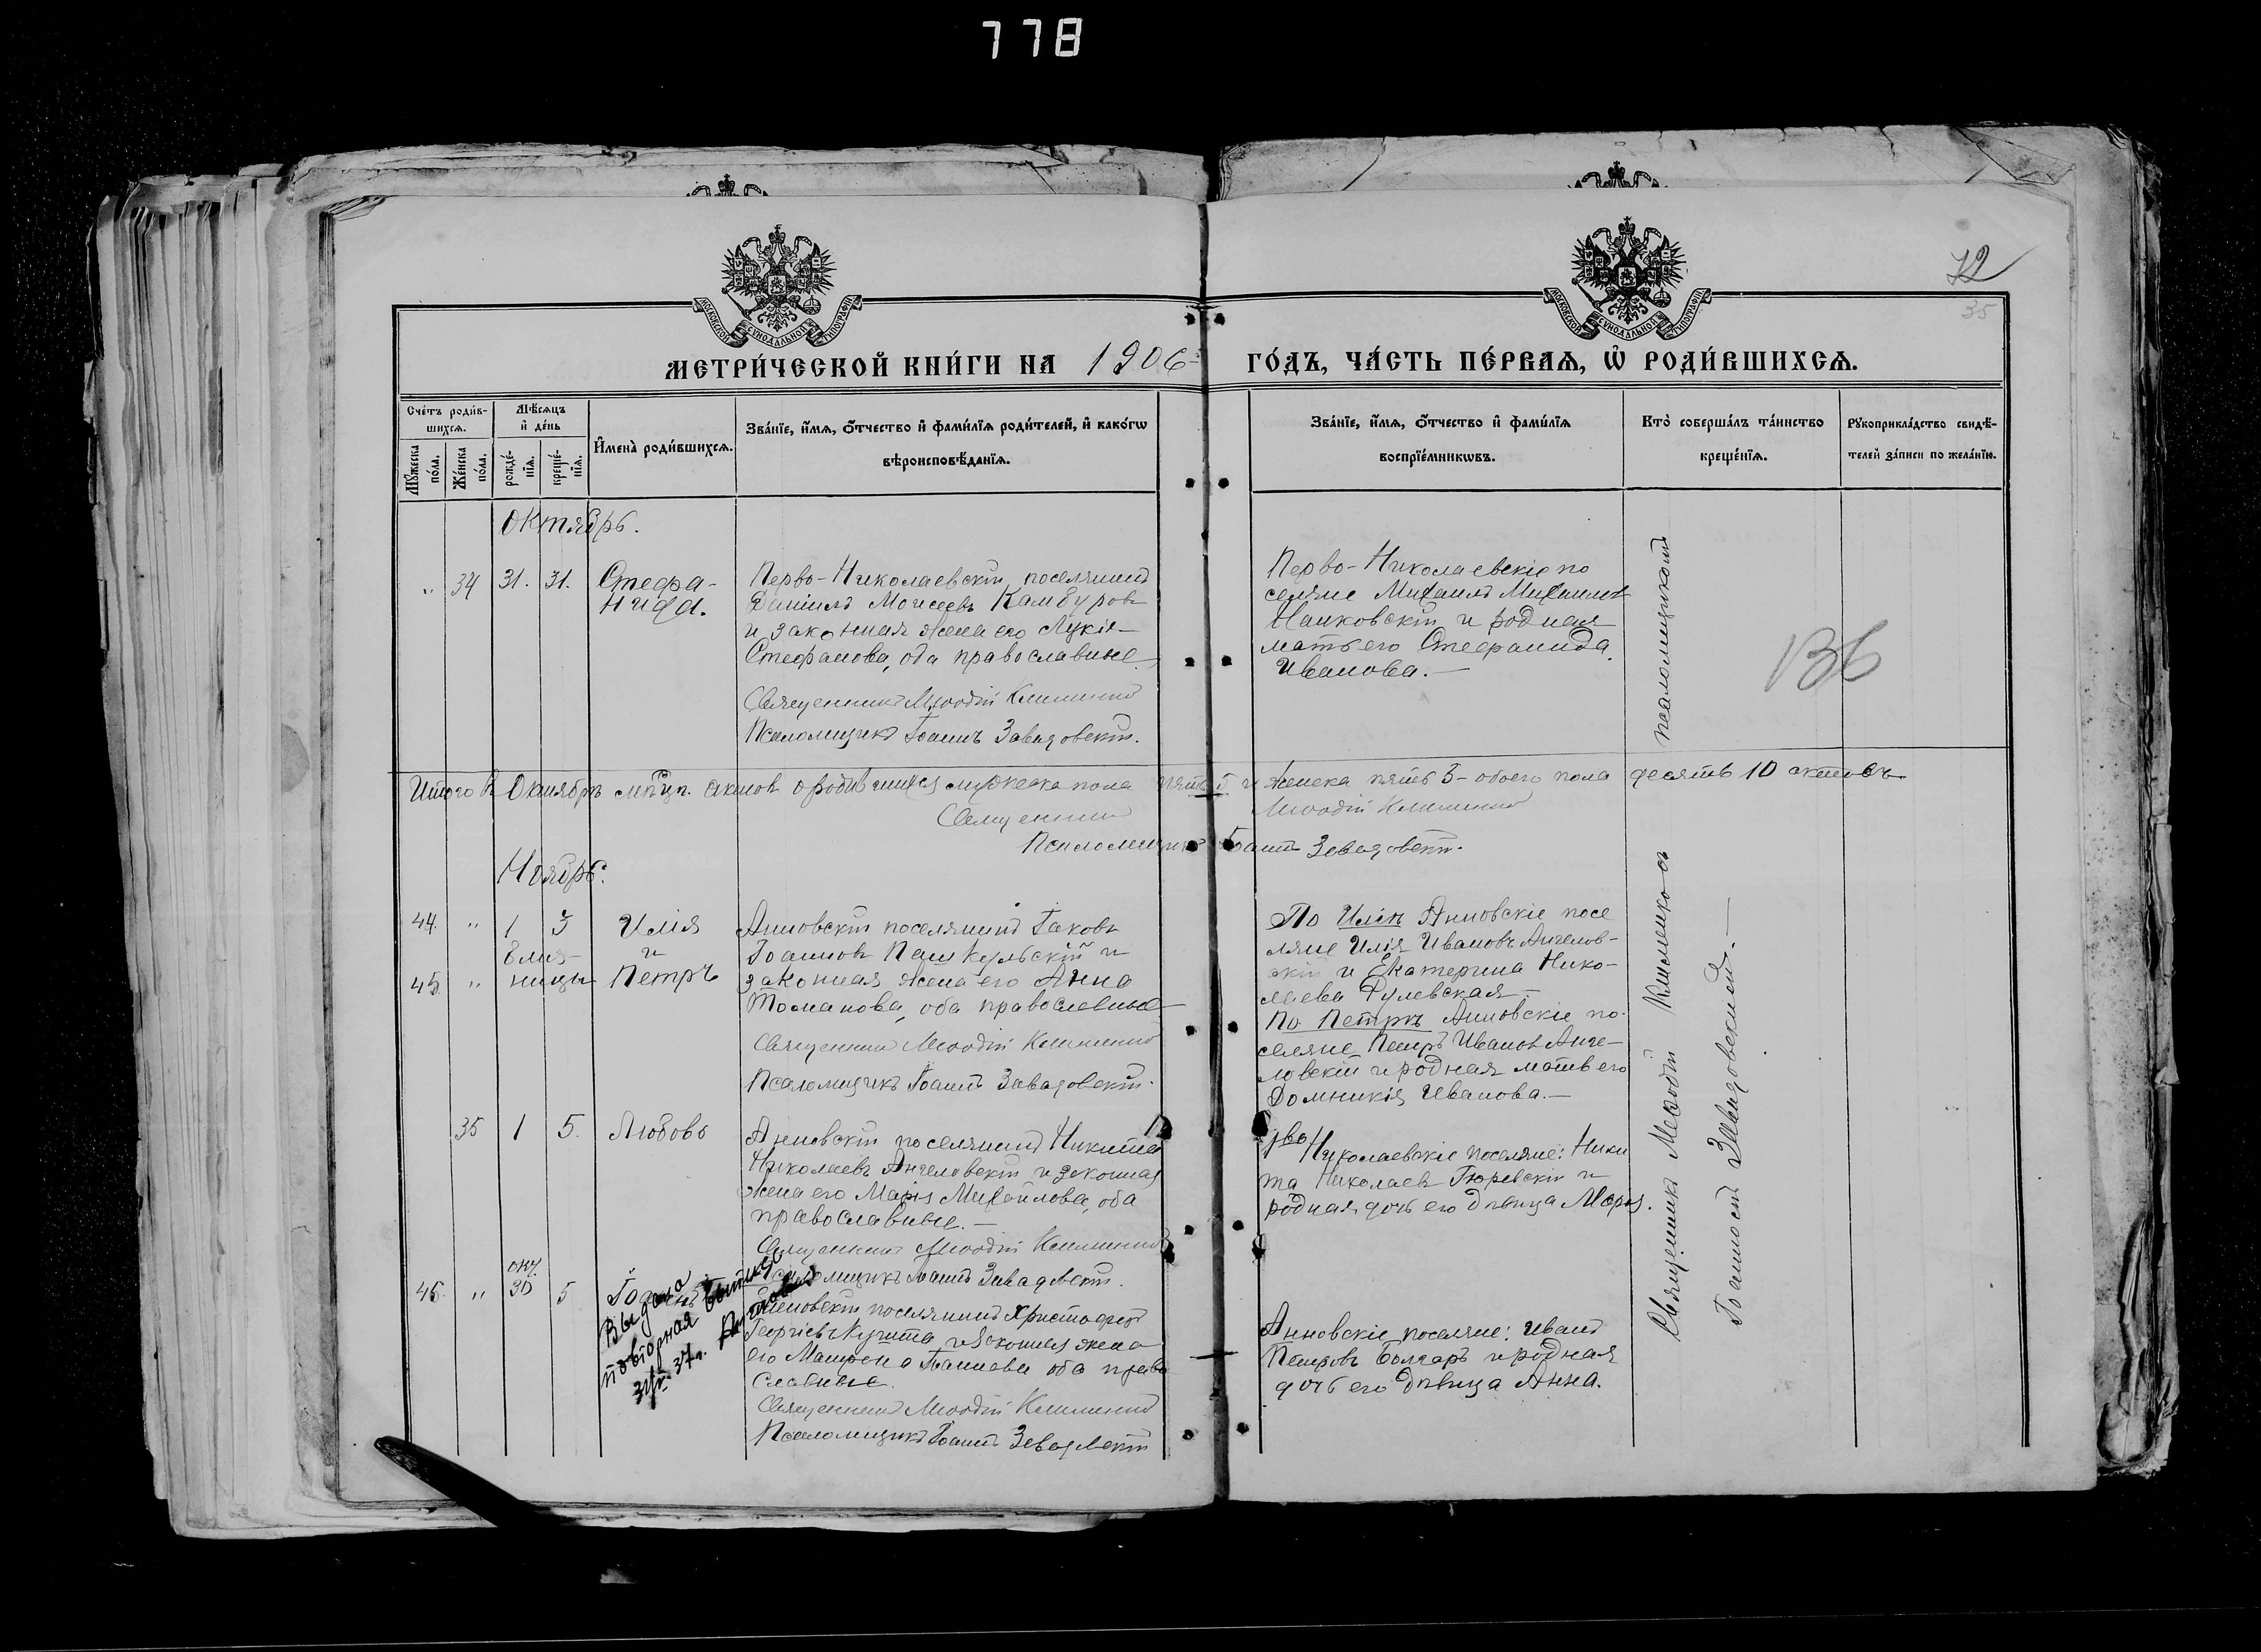 778
72
35
МОСКОВСКОЙ СѴНОДАЛЬНОЙ ТИПОГРАФІИ
МОСКОВСКОЙ СѴНОДАЛЬНОЙ ТИПОГРАФІИ
МЕТРИ́ЧЕСКОЙ КНИ́ГИ НА 1906 ГО́ДЪ, ЧА́СТЬ ПЕ́РВАѦ, Ѡ҆ РОДИ́ВШИХСѦ.
Сче́тъ роди́в-
шихсѧ.
Мѣ́сѧцъ
и҆ де́нь
Мꙋ́жеска по́ла.
Же́нска по́ла.
рожде́-нїѧ.
креще́-нїѧ.
И҆мена̀ роди́вшихсѧ.
Зва́нїе, и҆́мѧ, ѻ҆́тчество и҆ фами́лїѧ роди́телей, и҆ како́гѡ
вѣроисповѣ́данїѧ.
Зва́нїе, и҆́мѧ, ѻ҆́тчество и҆ фами́лїѧ
воспрїе́мникѡвъ.
Кто̀ соверша́лъ та́инство
креще́нїѧ.
Рꙋкоприкла́дство свидѣ́-
телей за́писи по жела́нїю.
Октябрь.
" 34 31. 31. Стефа-
нида.
Перво-Николаевскій поселянинъ
Даніилъ Моисеевъ Камбуровъ
и законная жена его Лукія
Стефанова, оба православные
Священникъ Меѳодій Клименко
Псаломщикъ Іоаннъ Завадовскій.
Перво-Николаевскіе по
селяне Михаилъ Михаиловъ
Наиковскій и родная
мать его Стефанида
Иванова.—
136
Итого въ Октябрѣ мѣсяцѣ актовъ о родившихся мужеска пола пять 5 и женска пять 5 - обоего пола десять 10 актовъ
Священникъ Меѳодій Клименко
Псаломщикъ Іоаннъ Завадовскій.
Ноябрь.
44. " 1 5 Илія
близ- и
45. " нецы Петръ
Анновскій поселянинъ Іаковъ
Іоанновъ Пашкульскій и
законная жена его Анна
Романова, оба православные
Священникъ Меѳодій Клименко
Псаломщикъ Іоаннъ Завадовскій.
По Иліи Анновскіе посе
ляне Илія Ивановъ Ангелов-
скій и Екатерина Нико-
лаева Рулевская.—
По Петрѣ Анновскіе по-
селяне Петръ Ивановъ Анге-
ловскій и родная мать его
Домникія Иванова.—
35 1 5. Любовь
Анновскій поселянинъ Никита
Николаевъ Ангеловскій и законная
жена его Марія Михайлова, оба
православные.—
Священникъ Меѳодій Клименко
Псаломщикъ Іоаннъ Завадовскій.
1во Николаевскіе поселяне: Ники
та Николаевъ Гюревскій и
родная дочь его дѣвица Марія.
окт.
45. " 30 5
Выдана
повторная
37г.
Анновскій поселянинъ Христофоръ
Георгіевъ Кучита и законная жена
его Матрона Іоаннова оба право
славные.
Священникъ Меѳодій Клименко
Псаломщикъ Іоаннъ Завадовскій
Анновскіе поселяне: Иванъ
Петровъ Болгаръ и родная
дочь его дѣвица Анна.
Священникъ Меѳодій Клименко съ псаломщикомъ
Іоанномъ Завадовскимъ.—